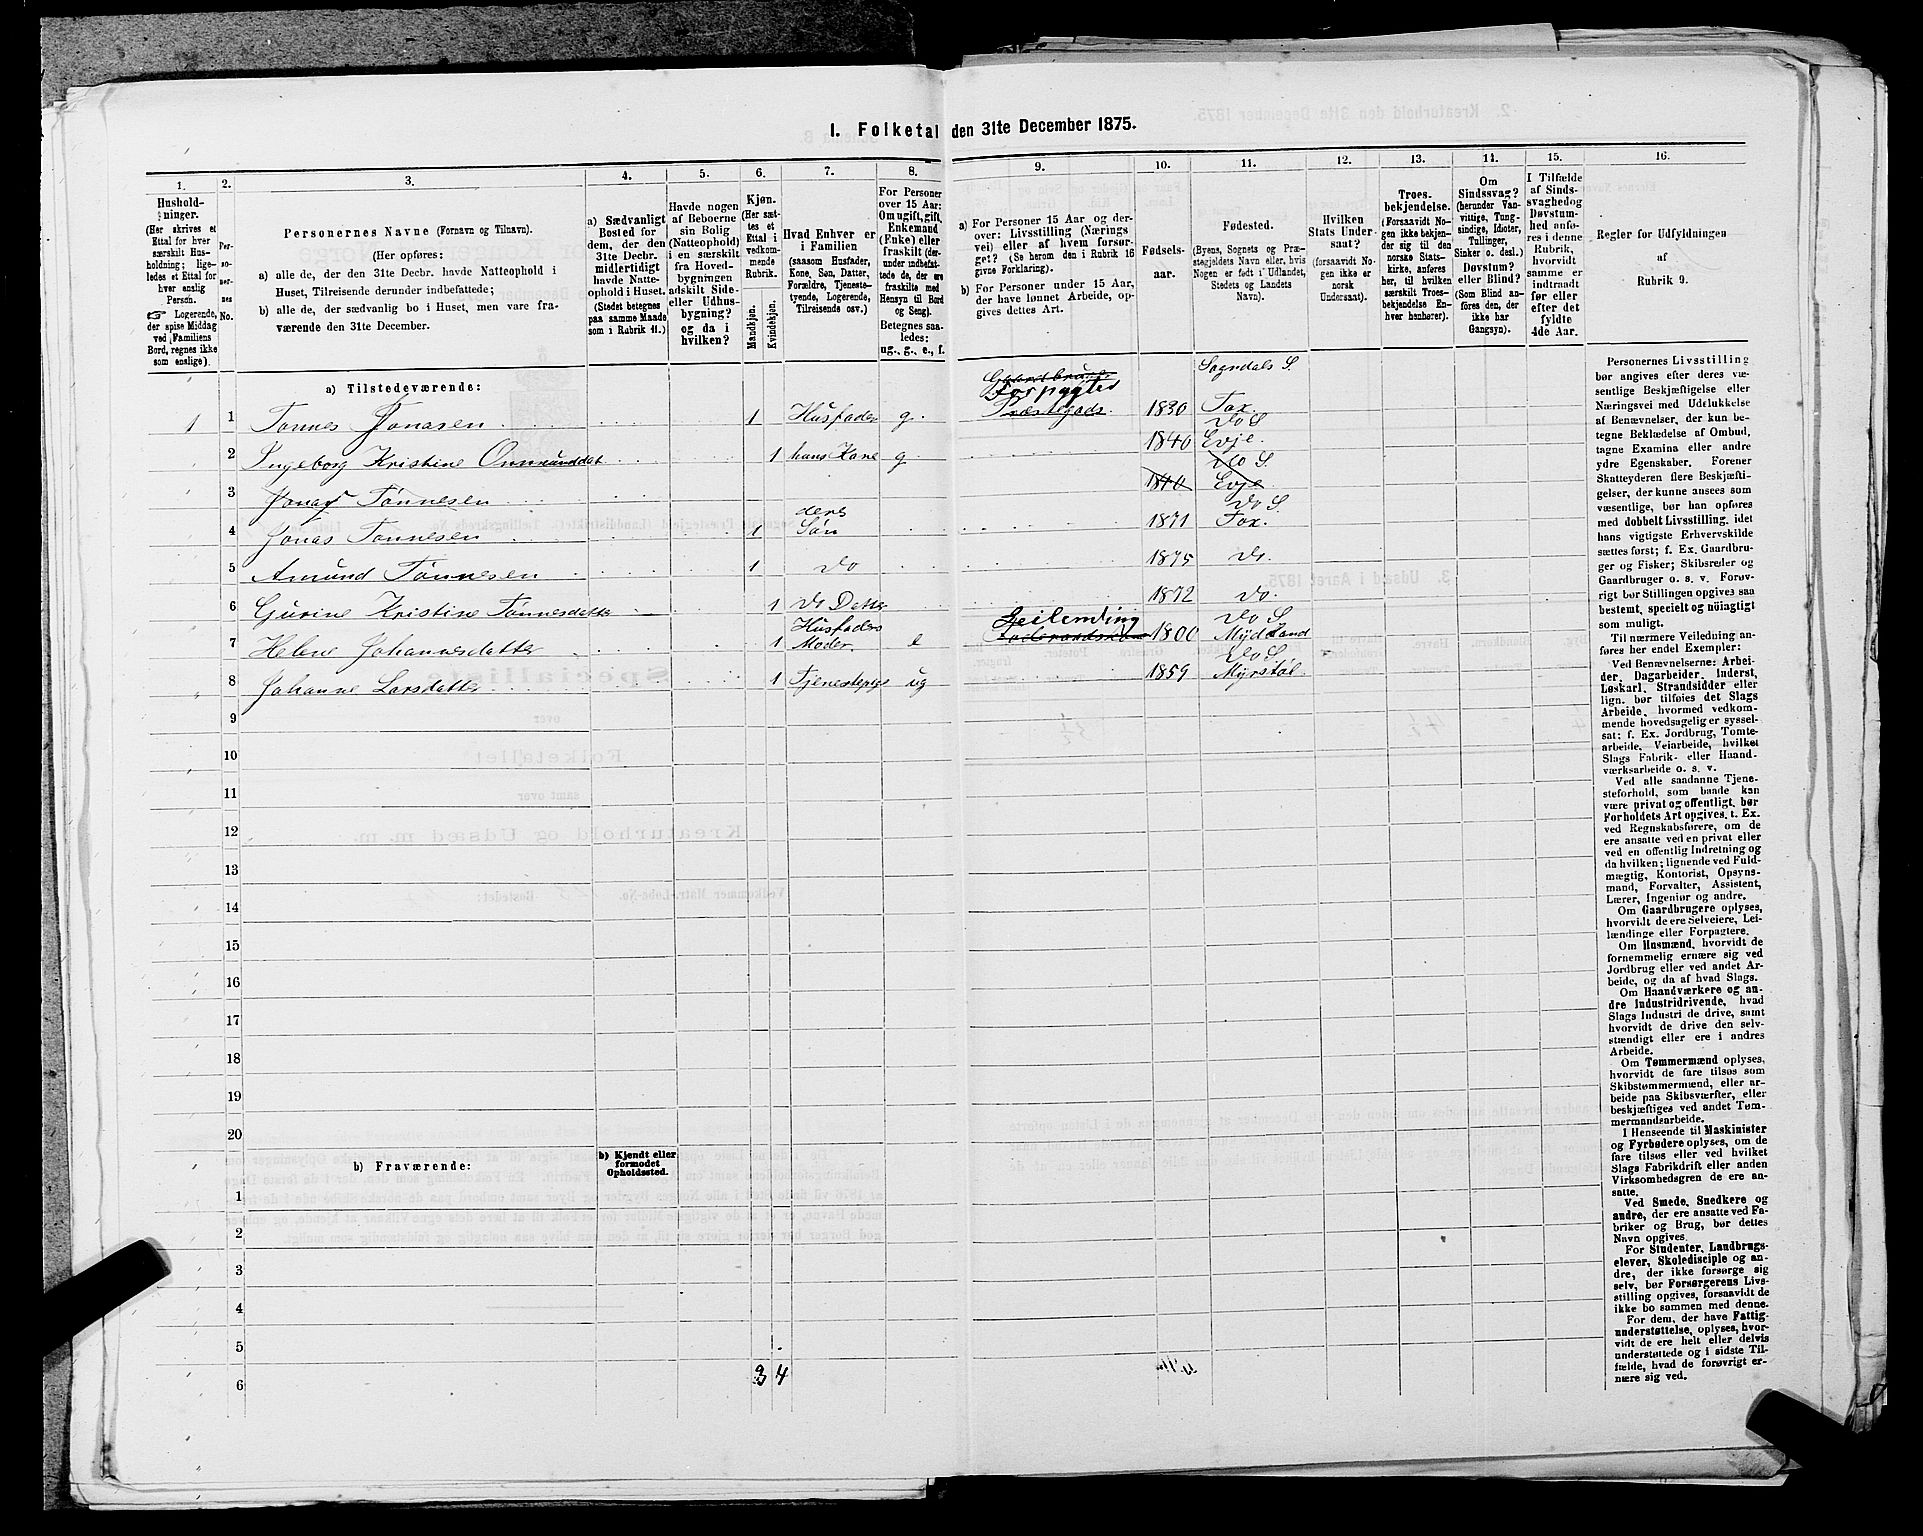 I. Folketal den 31te December 1875.
1. 2. 3. 4. 5. 6. 7. 8. 9. 10. 11. 12. 13. 14. 15. 16.
Hushold-
ninger.
(Her skrives et
Ettal for hver
særskilt Hus-
holdning; lige-
ledes et Ettal for
hver enslig
Person.
☞ Logerende,
der spise Middag
ved Familiens
Bord, regnes ikke
som enslige).
Per-
so-
ner-
nes
No.
Personernes Navne (Fornavn og Tilnavn).
(Her opføres:
a) alle de, der den 31te Decbr. havde Natteophold i
Huset, Tilreisende derunder indbefattede;
b) alle de, der sædvanlig bo i Huset, men vare fra-
værende den 31te December.
a) Sædvanligt
Bosted for
dem, der den
31te Decbr.
midlertidigt
havde Natte-
ophold i Huset.
(Stedet betegnes
paa samme Maade
som i Rubrik 11.)
Havde nogen
af Beboerne
sin Bolig
(Natteophold)
i en særskilt
fra Hoved-
bygningen
adskilt Side-
eller Udhus-
bygning?
og da i
hvilken?
Kjøn.
(Her sæt-
tes et
Ettal i
vedkom-
mende
Rubrik.
Mandkjøn.
Kvindekjøn.
Hvad Enhver er
i Familien
(saasom Husfader,
Kone, Søn, Datter,
Forældre, Tjeneste-
tyende, Logerende,
Tilreisende osv.)
For Personer
over 15 Aar:
Om ugift, gift,
Enkemand
(Enke) eller
fraskilt (der-
under indbefat-
tede de, der ere
fraskilte med
Hensyn til Bord
og Seng).
Betegnes saa-
ledes:
ug., g., e., f.
a) For Personer 15 Aar og der-
over: Livsstilling (Nærings
vei) eller af hvem forsør-
get? (Se herom den i Rubrik 16
givne Forklaring).
b) For Personer under 15 Aar,
der have lønnet Arbeide, op-
gives dettes Art.
Fødsels-
aar.
Fødested.
(Byens, Sognets og Præ-
stegjeldets Navn eller, hvis
Nogen er født i Udlandet,
Stedets og Landets
Navn).
Hvilken
Stats Under-
saat?
(forsaavidt No-
gen ikke er
norsk
Undersaat).
Troes-
bekjendelse.
(Forsaavidt No-
gen ikke bekjen-
der sig til den
norske Stats-
kirke, anføres
her, til hvilken
særskilt Troes-
bekjendelse En-
hver henhører).
Om
Sindssvag?
(herunder Van-
vittige, Tung-
sindige, Idioter,
Tullinger,
Sinker o. desl.)
Døvstum?
eller Blind?
(Som Blind an-
føres den, der
ikke har
Gangsyn).
I Tilfælde
af Sinds-
svaghed og
Døvstum-
hed anfø-
res i denne
Rubrik,
hvorvidt
samme er
indtraadt
før eller
efter det
fyldte
4de Aar.
Regler for Udfyldningen
af
Rubrik 9.
a) Tilstedeværende:
1 1 Tønnes Jonasen 1 Husfader g. Gaardbruger Forpagted Præstegods. 1830 Sogndals S. Fox.
2 Ingeborg Kristine Ommunddat 1 hans Kone g 1840 do S Evje.
3 Jonas Tønnesen 1840 do S. Evje
4 Jonas Tønnesen 1 deres Søn 1871 do S. Fox.
5 Amund Tønnesen 1 do 1875 do.
6 Gurine Kristine Tønnesdatter 1 do Datter 1872 do.
7 Helene Johannesdatter 1 Husfaders Moder. e Leilending 1800 do S Mydland
8 Johanne Larsdatter 1 Tjenestepige ug 1859 do S Myrstøl.
9
10
11
12
13
14
15
16
17
18
19
20
b) Fraværende:
b) Kjendt eller
formodet
Opholdssted.
1
2
3
4
5
6
3 4
Personernes Livsstilling
bør angives efter deres væ-
sentlige Beskjæftigelse eller
Næringsvei med Udelukkelse
af Benævnelser, der kun be-
tegne Beklædelse af Ombud,
tagne Examina eller andre
ydre Egenskaber. Forener
Skatteyderen flere Beskjæfti-
gelser, der kunne ansees som
væsentlige, bør han opføres
med dobbelt Livsstilling, idet
hans vigtigste Erhvervskilde
sættes først; f. Ex. Gaardbru-
ger og Fisker; Skibsreder og
Gaardbruger o. s. v. Forøv-
rigt bør Stillingen opgives saa
bestemt, specielt og nøiagtigt
som muligt.
Til nærmere Veiledning an-
føres her endel Exempler:
Ved Benævnelserne: Arbei-
der, Dagarbeider, Inderst,
Løskarl, Strandsidder eller
lign. bør tilføies det Slags
Arbeide, hvormed vedkom-
mende hovedsagelig er syssel-
sat; f. Ex. Jordbrug, Tomte-
arbeide, Veiarbeide, hvilket
Slags Fabrik- eller Haand-
værksarbeide o. s. v.
Ved alle saadanne Tjene-
steforhold, som baade kan
være privat og offentligt, bør
Forholdets Art opgives, t. Ex.
ved Regnskabsførere, om de
ere ansatte ved en privat eller
ved en offentlig Indretning og
da hvilken; lignende ved Fuld-
mægtig, Kontorist, Opsyns-
mand, Forvalter, Assistent,
Lærer, Ingeniør og andre.
Om Gaardbrugere oplyses,
hvorvidt de ere Selveiere, Lei-
lændinge eller Forpagtere.
Om Husmænd, hvorvidt de
fornemmelig ernære sig ved
Jordbrug eller ved andet Ar-
beide, og da af hvad Slags.
Om Haandværkere og an-
dre Industridrivende, hvad
Slags Industri de drive, samt
hvorvidt de drive den selv-
stændigt eller ere i andres
Arbeide.
Om Tømmermænd oplyses,
hvorvidt de fare tilsøs som
Skibstømmermænd, eller ar-
beide paa Skibsværfter, eller
beskjæftiges ved andet Tøm-
mermandsarbeide.
I Henseende til Maskinister
og Fyrbødere oplyses, om de
fare tilsøs eller ved hvilket
Slags Fabrikdrift eller anden
Virksomhedsgren de ere an-
satte.
Ved Smede, Snedkere og
andre, der ere ansatte ved Fa-
briker og Brug, bør dettes
Navn opgives.
For Studenter, Landbrugs-
elever, Skoledisciple og an-
dre, der ikke forsørge sig
selv, bør Forsørgerens Livs-
stilling opgives, forsaavidt de
ikke bo sammen med denne.
For dem, der have Fattig-
understøttelse, oplyses, hvor-
vidt de ere helt eller delvis
understøttede og i sidste Til-
fælde, hvad de forøvrigt er-
nære sig ved.